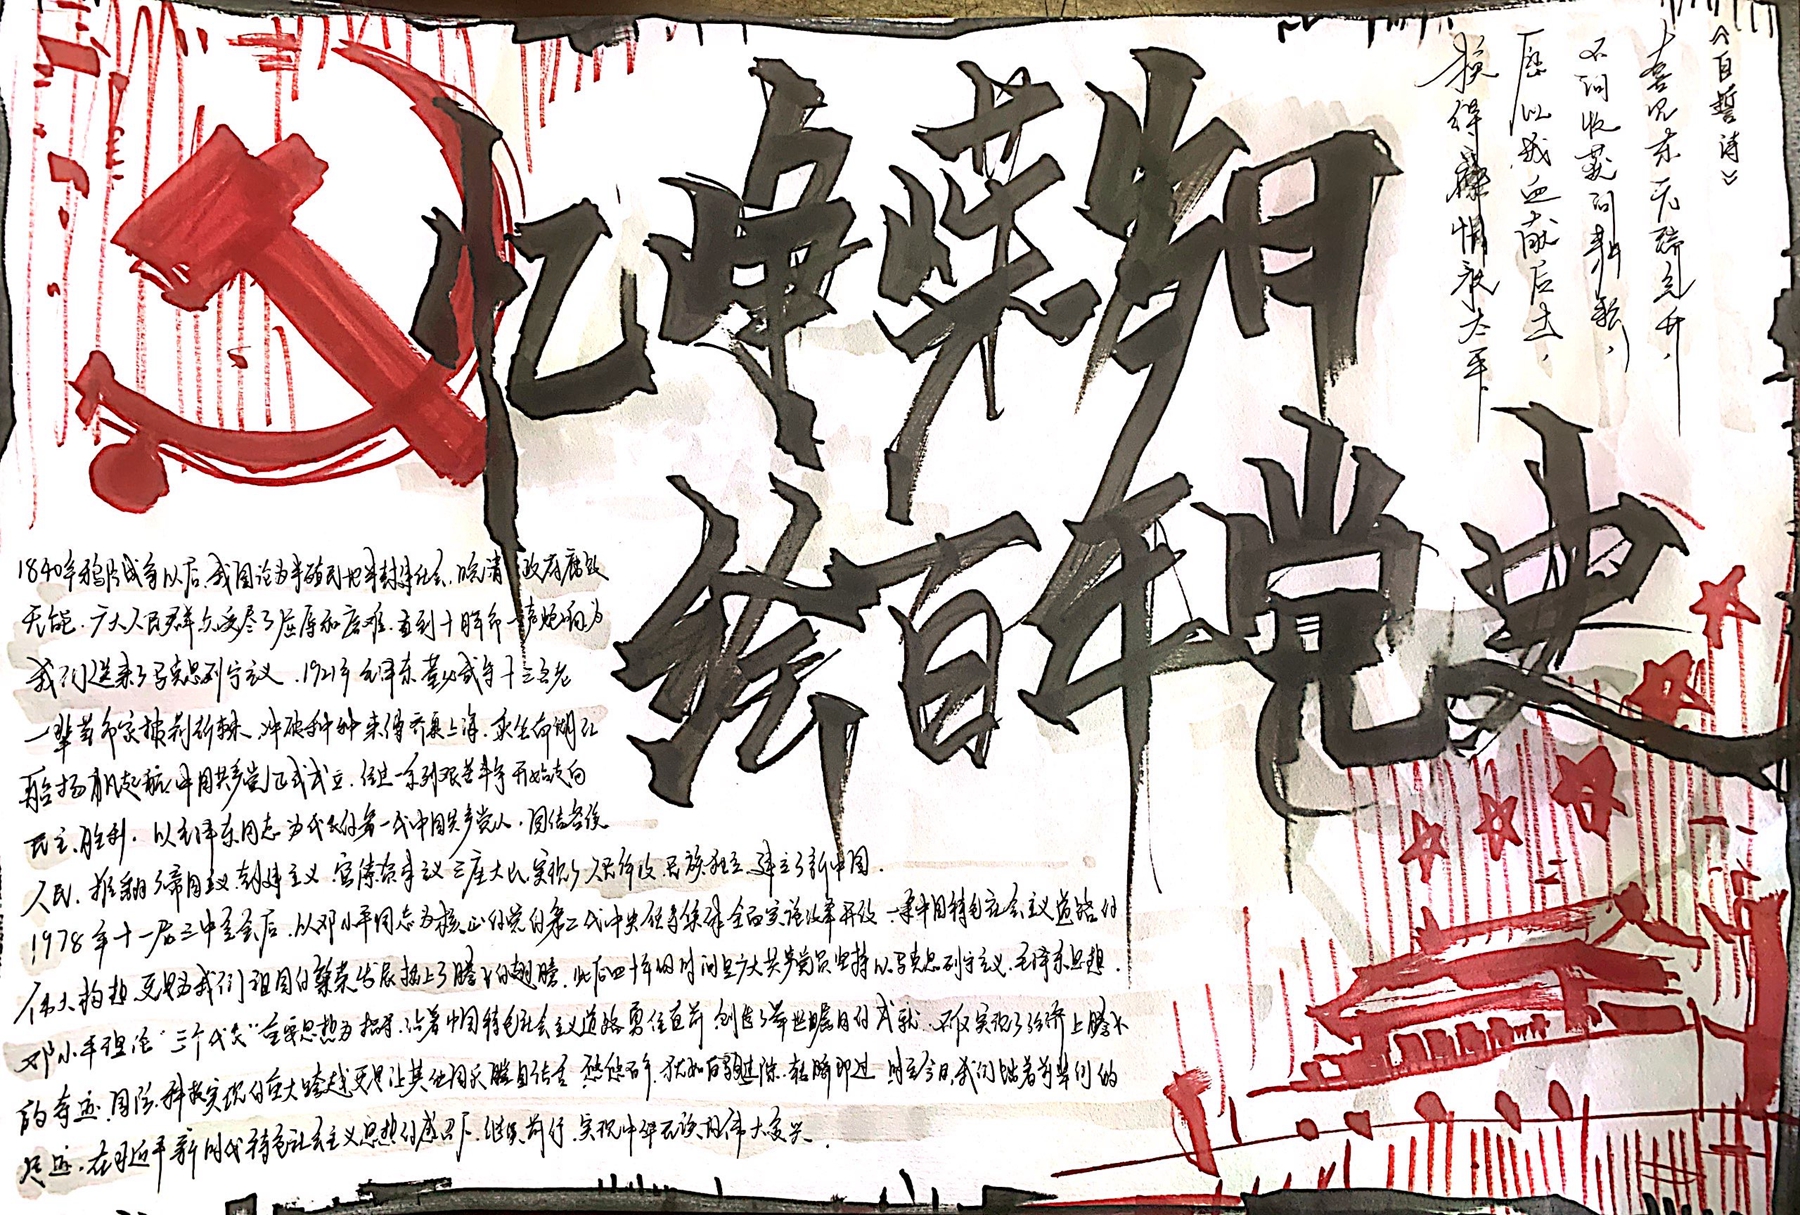 忆峥嵘岁月
绘百年党史
《自誓诗》
喜见东天瑞气升，
不问收获问耕耘，
愿以我血献后土，
换得神州永太平
1840年鸦片战争以后，我国沦为半殖民地半封建社会，晚清政府腐败
无能，广大人民群众受尽了屈辱和磨难，直到十月革命一声炮响为
我们送来了马克思列宁主义，1921年毛泽东董必武等十三名老
一辈革命家披荆斩棘，冲破种种来得齐聚上海，乘坐南湖红
船扬帆起航，中国共产党正式成立，经过一系列艰苦斗争开始走向
民主、胜利，以毛泽东同志为代表的第一代中国共产党人，团结各族
人民，推翻了帝国主义、封建主义、官僚资本主义三座大山，实现了人民解放，民族独立，建立了新中国。
1978年十一届三中全会后，以邓小平同志为核心的党的第二代中央领导集体全面实施改革开放，一条中国特色社会主义道路的
伟大构想，更是为我们祖国的繁荣发展插上了腾飞的翅膀，此后四十年的时间里广大共产党员坚持以马克思列宁主义、毛泽东思想、
邓小平理论"三个代表"重要思想为指导，沿着中国特色社会主义道路勇往直前，创造了举世瞩目的成就，不仅实现了经济上腾飞
的奇迹，国防、科技实现的重大跨越更是让其他国灭瞠目结舌，悠悠百年，犹如白驹过隙，转瞬即过，时至今日，我们踏着前辈们的
足迹，在习近平新时代特色社会主义思想的感召下，继续前行，实现中华民族的伟大复兴.